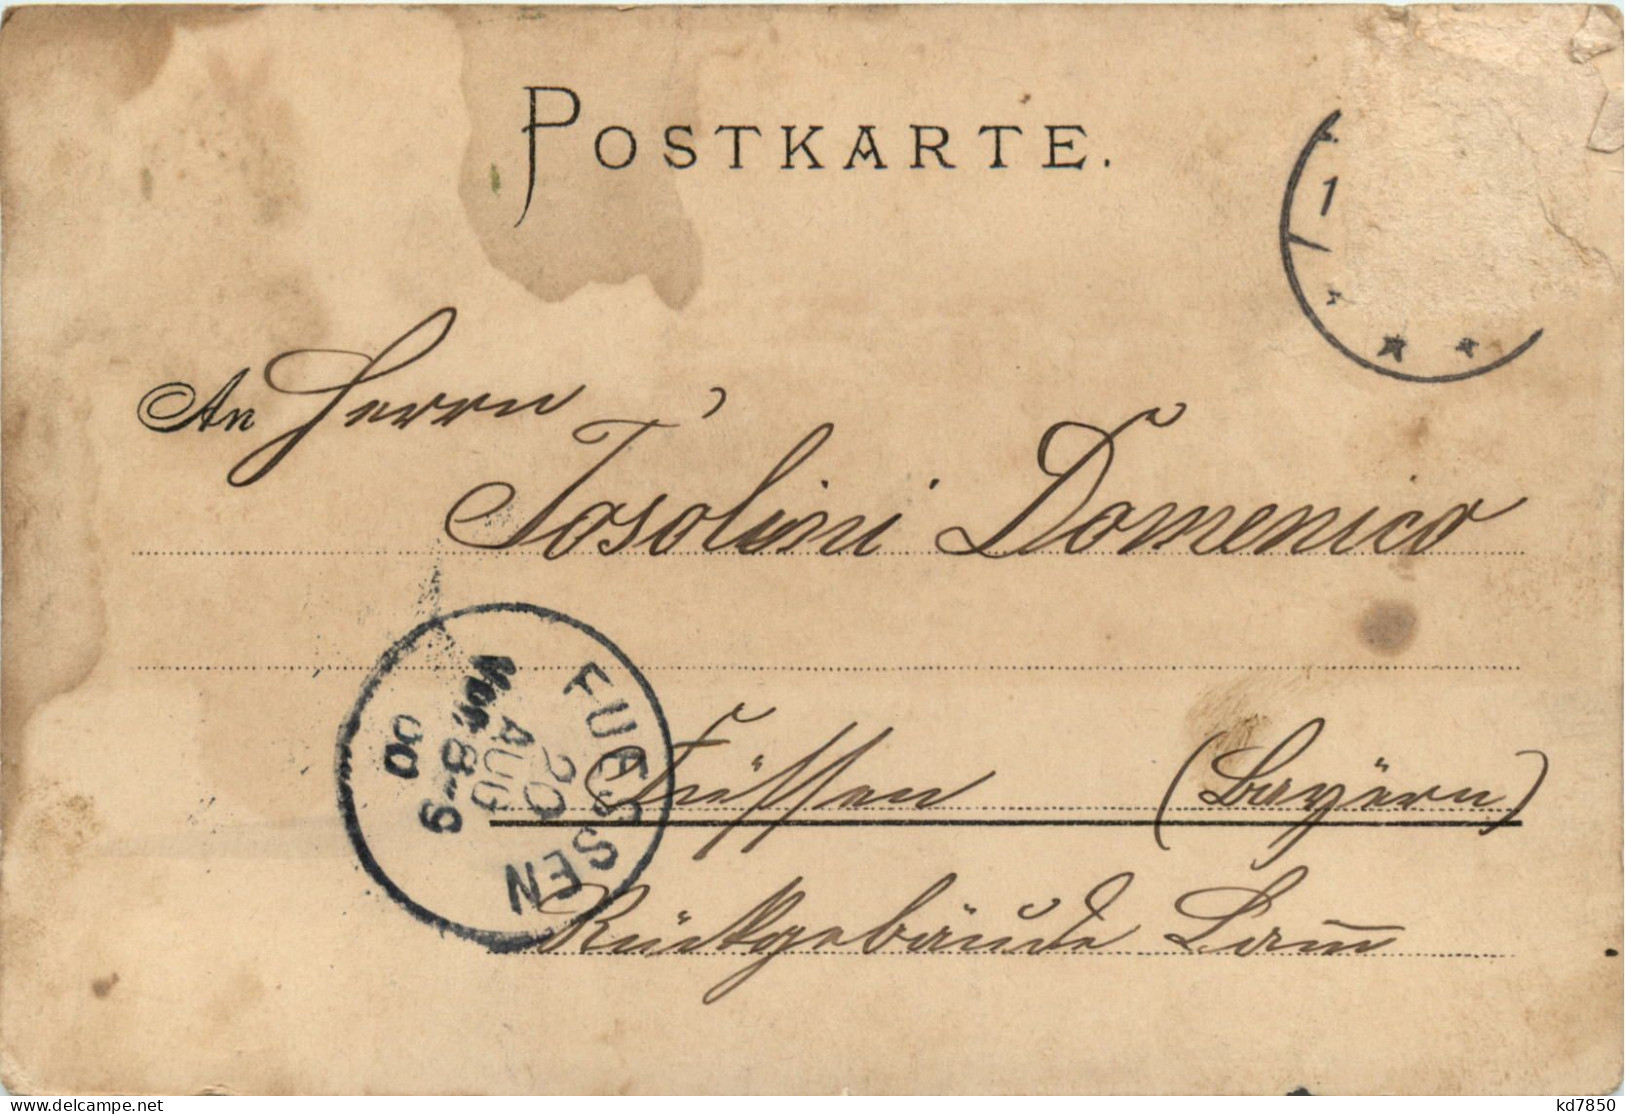 POSTKARTE.
1
An Herrn
Tosolini Domenico
FUESSEN
Vor. 8-9
20
AUG
00
Füssen (Bayern)
Rückgebäude
www.delcampe.net
kd7850